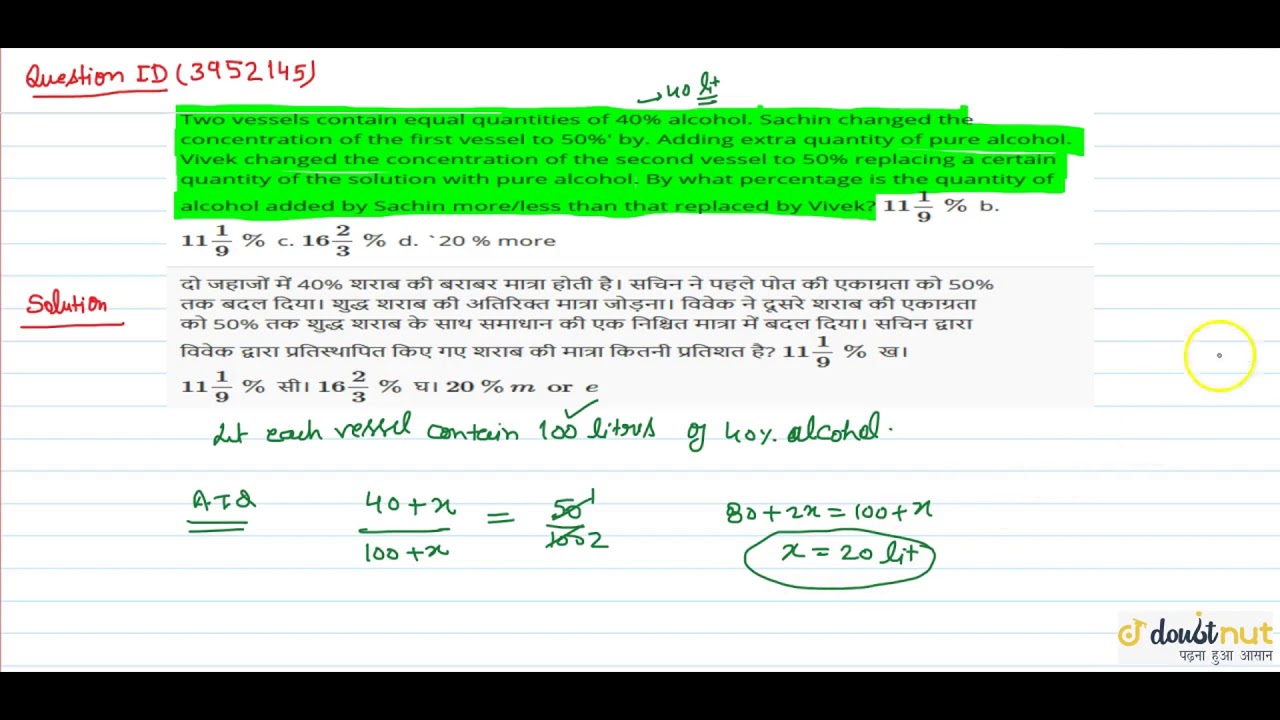 Question ID (3952145)
→40 lit
Two vessels contain equal quantities of 40% alcohol. Sachin changed the
concentration of the first vessel to 50%' by. Adding extra quantity of pure alcohol.
Vivek changed the concentration of the second vessel to 50% replacing a certain
quantity of the solution with pure alcohol. By what percentage is the quantity of
alcohol added by Sachin more/less than that replaced by Vivek? 11 1/9 % b.
11 1/9 % c. 16 2/3 % d. `20 % more
Solution
दो जहाजों में 40% शराब की बराबर मात्रा होती है। सचिन ने पहले पोत की एकाग्रता को 50%
तक बदल दिया। शुद्ध शराब की अतिरिक्त मात्रा जोड़ना। विवेक ने दूसरे शराब की एकाग्रता
को 50% तक शुद्ध शराब के साथ समाधान की एक निश्चित मात्रा में बदल दिया। सचिन द्वारा
विवेक द्वारा प्रतिस्थापित किए गए शराब की मात्रा कितनी प्रतिशत है? 11 1/9 % ख।
11 1/9 % सी। 16 2/3 % घ। 20 % m or e
Let each vessel contain 100 litres of 40% alcohol.
ATQ
40+x / 100+x = 50 1 / 100 2
80+2x = 100+x
x = 20 lit
doubtnut
पढ़ना हुआ आसान